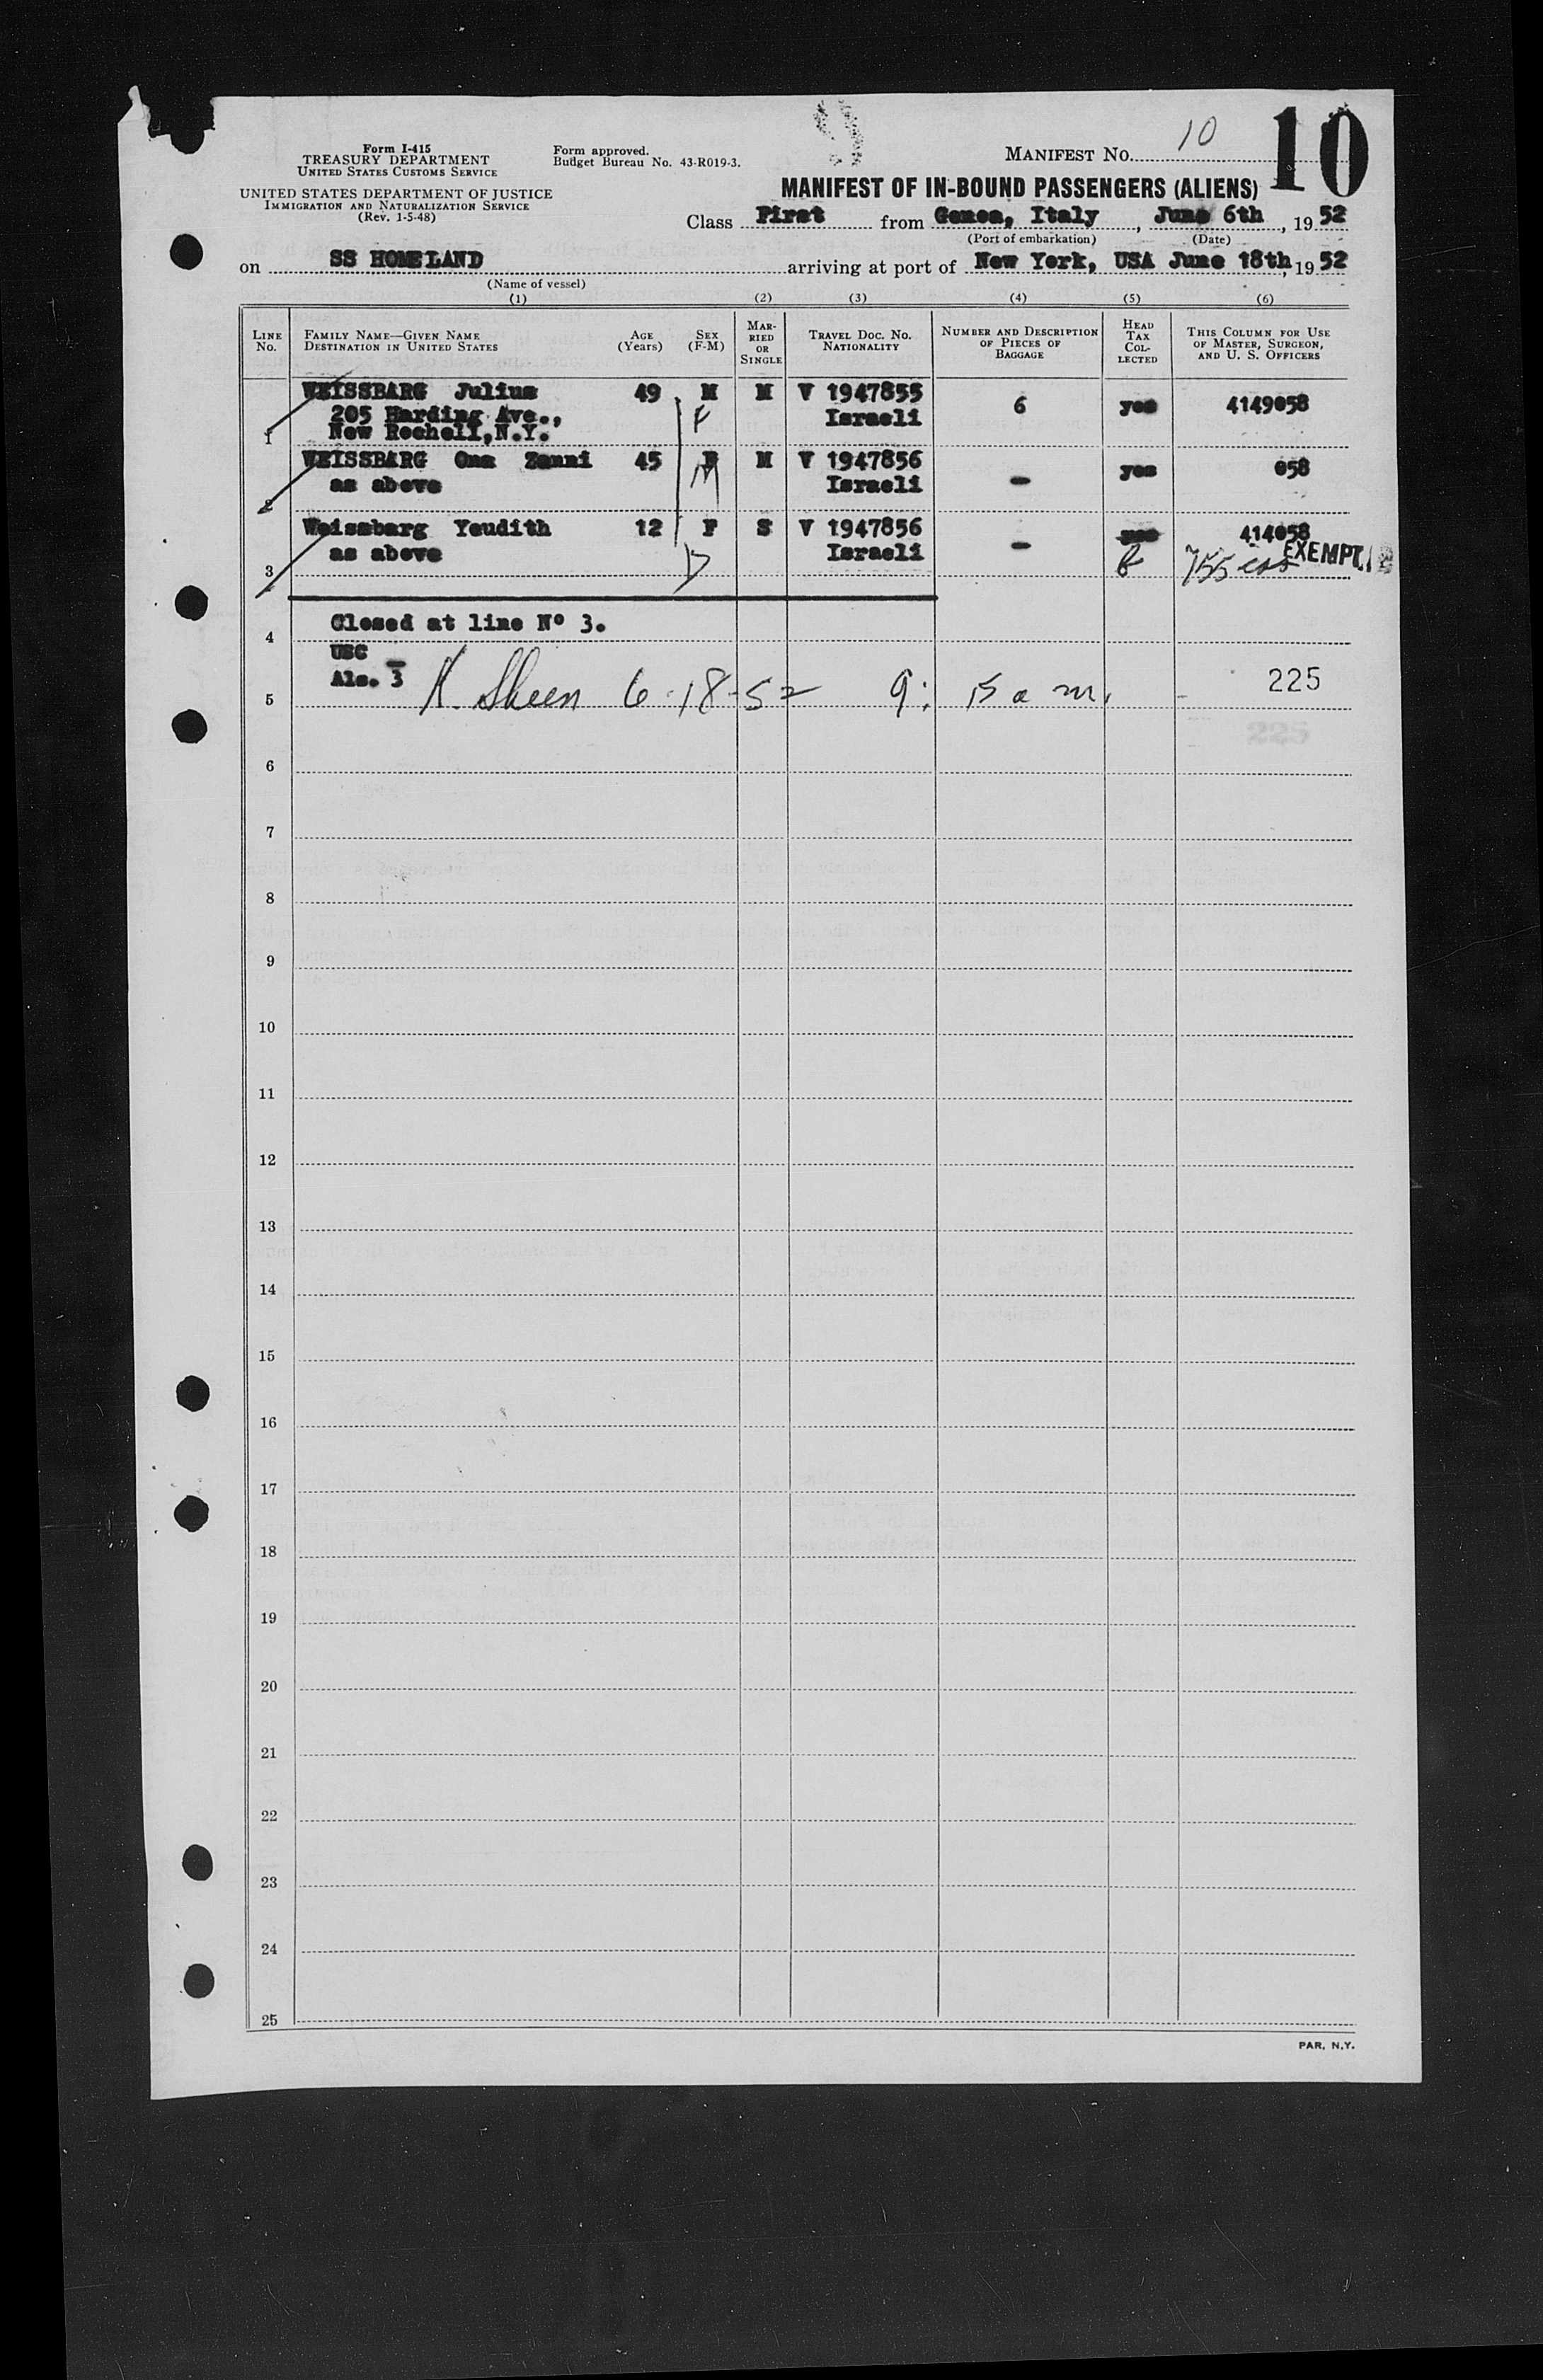 10
Form I-415
TREASURY DEPARTMENT
UNITED STATES CUSTOMS SERVICE
UNITED STATES DEPARTMENT OF JUSTICE
IMMIGRATION AND NATURALIZATION SERVICE
(Rev. 1-5-48)
Form approved.
Budget Bureau No. 43-R019-3.
MANIFEST NO. 10
MANIFEST OF IN-BOUND PASSENGERS (ALIENS)
Class First from Genoa, Italy, June 6th, 1952
(Port of embarkation) (Date)
on SS HOMELAND arriving at port of New York, USA June 18th, 1952
(Name of vessel)
(1) (2) (3) (4) (5) (6)
LINE No. FAMILY NAME—GIVEN NAME DESTINATION IN UNITED STATES AGE (Years) SEX (F-M) MARRIED OR SINGLE TRAVEL DOC. NO. NATIONALITY NUMBER AND DESCRIPTION OF PIECES OF BAGGAGE HEAD TAX COLLECTED THIS COLUMN FOR USE OF MASTER, SURGEON, AND U. S. OFFICERS
WEISSBARG Julius 49 M M V 1947855 6 yes 4149058
205 Harding Ave., F Israeli
1 New Rochell, N.Y.
WEISSBARG Ona Zenni 45 F M V 1947856 - yes 058
as above M Israeli
2
Weissbarg Yeudith 12 F S V 1947856 - yes 414058
as above Israeli EXEMPT
3 D 755
Closed at line Nº 3.
4
USC -
Als. 3 Sheen 6-18-52 9:15 a m. - 225
5
225
6
7
8
9
10
11
12
13
14
15
16
17
18
19
20
21
22
23
24
25
PAR. N.Y.